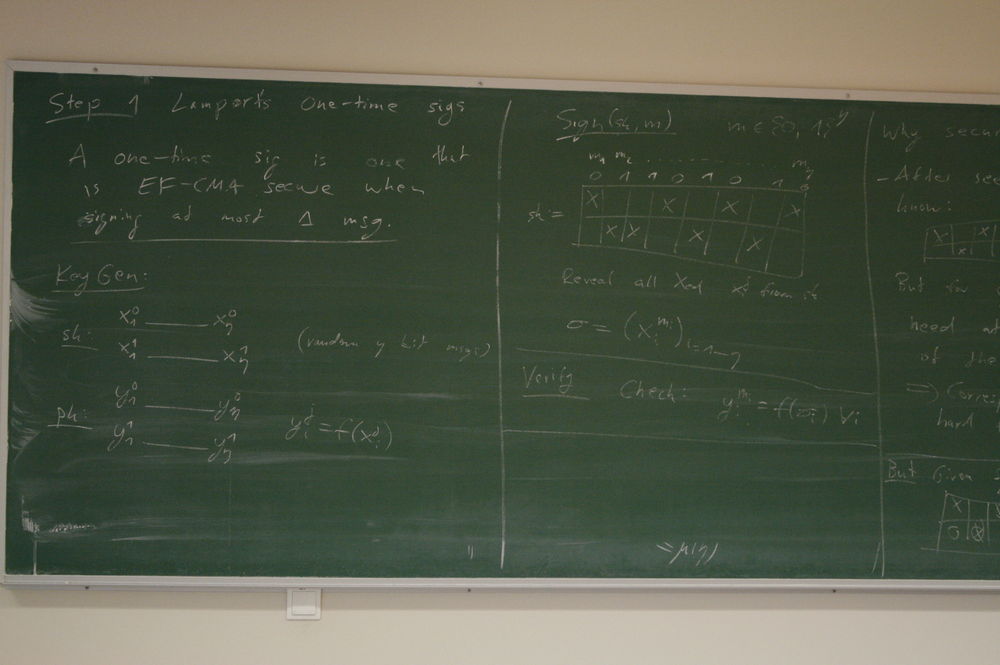 Step 1 Lamport's one-time sigs
A one-time sig is one that
is EF-CMA secure when
signing at most 1 msg.
KeyGen:
sk: x₁⁰ —— x_η⁰
x₁¹ —— x_η¹ (random η bit msgs)
pk: y₁⁰ —— y_η⁰
y₁¹ —— y_η¹ yᵢʲ = f(xᵢʲ)
Sign(sk, m) m ∈ {0,1}^η
m₁ m₂ ........ m_η
0 1 1 0 1 0 1 0
sk =
X X X X
X X X X
Reveal all Xed from it
σ = (xᵢ^{mᵢ}) i=1—η
Verify Check: yᵢ^{mᵢ} = f(σᵢ) ∀i
= μ(η)
Why secu
- After see
know:
X X
X
But for
need at
of the
=> Corresp
hard
But Given
X
0